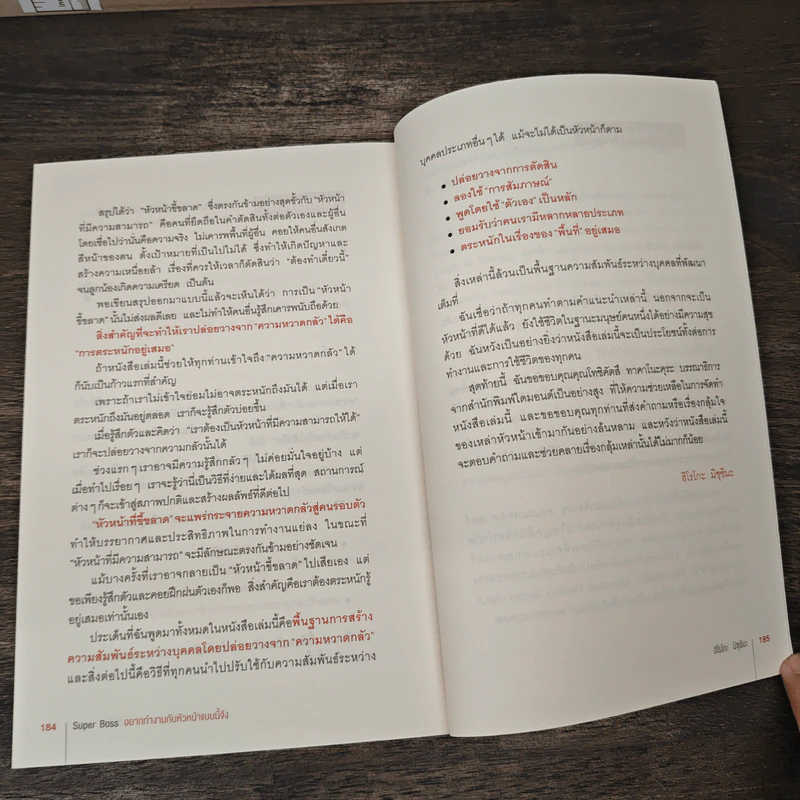 สรุปได้ว่า "หัวหน้าขี้ขลาด" ซึ่งตรงกันข้ามอย่างสุดขั้วกับ "หัวหน้า
ที่มีความสามารถ" คือคนที่ยึดถือในคำตัดสินทั้งต่อตัวเองและผู้อื่น
โดยเชื่อไปว่านั่นคือความจริง ไม่เคารพพื้นที่ผู้อื่น คอยให้คนอื่นสังเกต
สีหน้าของตน ตั้งเป้าหมายที่เป็นไปไม่ได้ ซึ่งทำให้เกิดปัญหาและ
สร้างความเหนื่อยล้า เรื่องที่ควรให้เวลาก็ตัดสินว่า "ต้องทำเดี๋ยวนี้"
จนลูกน้องเกิดความเครียด เป็นต้น
พอเขียนสรุปออกมาแบบนี้แล้วจะเห็นได้ว่า การเป็น "หัวหน้า
ขี้ขลาด" นั้นไม่ส่งผลดีเลย และไม่ทำให้คนอื่นรู้สึกเคารพนับถือด้วย
สิ่งสำคัญที่จะทำให้เราปล่อยวางจาก "ความหวาดกลัว" ได้คือ
"การตระหนักอยู่เสมอ"
ถ้าหนังสือเล่มนี้ช่วยให้ทุกท่านเข้าใจถึง "ความหวาดกลัว" ได้
ก็นับเป็นก้าวแรกที่สำคัญ
เพราะถ้าเราไม่เข้าใจย่อมไม่อาจตระหนักถึงมันได้ แต่เมื่อเรา
ตระหนักถึงมันอยู่ตลอด เราก็จะรู้สึกตัวบ่อยขึ้น
เมื่อรู้สึกตัวและคิดว่า "เราต้องเป็นหัวหน้าที่มีความสามารถให้ได้"
เราก็จะปล่อยวางจากความกลัวนั้นได้
ช่วงแรก ๆ เราอาจมีความรู้สึกกลัว ๆ ไม่ค่อยมั่นใจอยู่บ้าง แต่
เมื่อทำไปเรื่อย ๆ เราจะรู้ว่านี่เป็นวิธีที่ง่ายและได้ผลที่สุด สถานการณ์
ต่าง ๆ ก็จะเข้าสู่สภาพปกติและสร้างผลลัพธ์ที่ดีต่อไป
"หัวหน้าที่ขี้ขลาด" จะแพร่กระจายความหวาดกลัวสู่คนรอบตัว
ทำให้บรรยากาศและประสิทธิภาพในการทำงานแย่ลง ในขณะที่
"หัวหน้าที่มีความสามารถ" จะมีลักษณะตรงกันข้ามอย่างชัดเจน
แม้บางครั้งที่เราอาจกลายเป็น "หัวหน้าขี้ขลาด" ไปเสียเอง แต่
ขอเพียงรู้สึกตัวและคอยฝึกฝนตัวเองก็พอ สิ่งสำคัญคือเราต้องตระหนักรู้
อยู่เสมอเท่านั้นเอง
ประเด็นที่ฉันพูดมาทั้งหมดในหนังสือเล่มนี้คือพื้นฐานการสร้าง
ความสัมพันธ์ระหว่างบุคคลโดยปล่อยวางจาก "ความหวาดกลัว"
และสิ่งต่อไปนี้คือวิธีที่ทุกคนนำไปปรับใช้กับความสัมพันธ์ระหว่าง
184 Super Boss อยากทำงานกับหัวหน้าแบบนี้จัง
บุคคลประเภทอื่น ๆ ได้ แม้จะไม่ได้เป็นหัวหน้าก็ตาม
• ปล่อยวางจากการตัดสิน
• ลองใช้ "การสัมภาษณ์"
• พูดโดยใช้ "ตัวเอง" เป็นหลัก
• ยอมรับว่าคนเรามีหลากหลายประเภท
• ตระหนักในเรื่องของ "พื้นที่" อยู่เสมอ
สิ่งเหล่านี้ล้วนเป็นพื้นฐานความสัมพันธ์ระหว่างบุคคลที่พัฒนา
เต็มที่
ฉันเชื่อว่าถ้าทุกคนทำตามคำแนะนำเหล่านี้ นอกจากจะเป็น
หัวหน้าที่ดีได้แล้ว ยังใช้ชีวิตในฐานะมนุษย์คนหนึ่งได้อย่างมีความสุข
ด้วย ฉันหวังเป็นอย่างยิ่งว่าหนังสือเล่มนี้จะเป็นประโยชน์ทั้งต่อการ
ทำงานและการใช้ชีวิตของทุกคน
สุดท้ายนี้ ฉันขอขอบคุณคุณโทชิคัตสึ ทาคาโนะคุระ บรรณาธิการ
จากสำนักพิมพ์ไดมอนด์เป็นอย่างสูง ที่ให้ความช่วยเหลือในการจัดทำ
หนังสือเล่มนี้ และขอขอบคุณทุกท่านที่ส่งคำถามหรือเรื่องกลุ้มใจ
ของเหล่าหัวหน้าเข้ามากันอย่างล้นหลาม และหวังว่าหนังสือเล่มนี้
จะตอบคำถามและช่วยคลายเรื่องกลุ้มเหล่านั้นได้ไม่มากก็น้อย
ฮิโรโกะ มิซุชิมะ
ฮิโรโกะ มิซุชิมะ 185